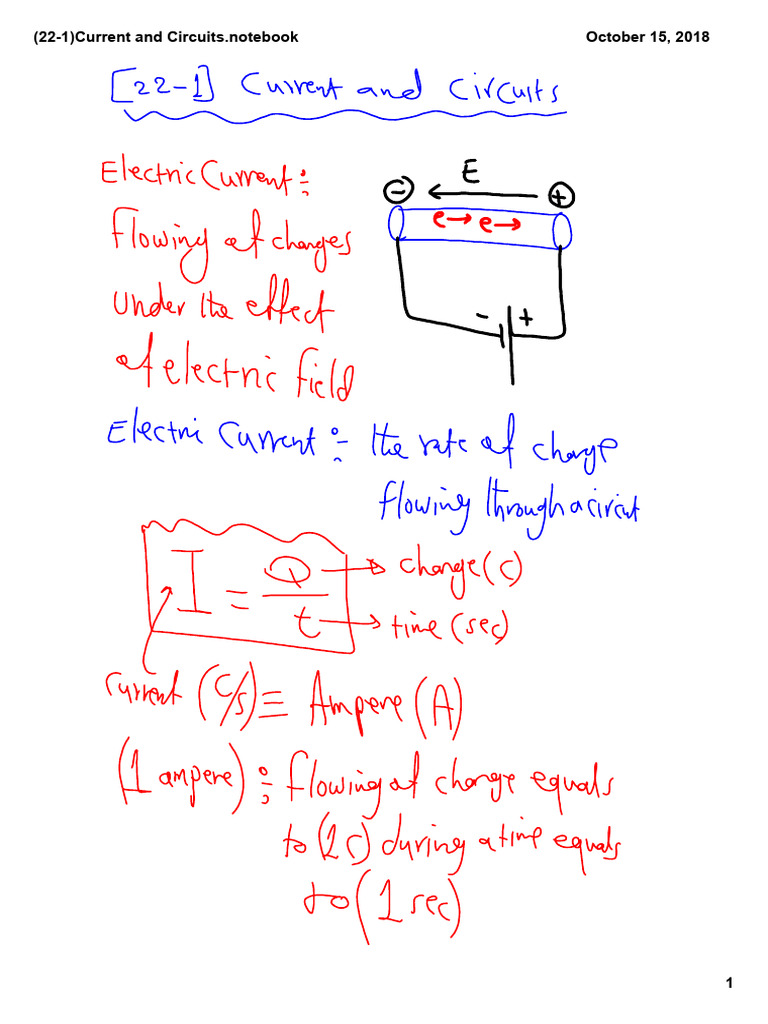 (22-1)Current and Circuits.notebook
October 15, 2018
[22-1] Current and Circuits
Electric Current:
E
- +
flowing of charges
e→ e→
under the effect
- +
of electric field
Electric Current:- the rate of charge
flowing through a circuit
I = Q/t
→ charge (C)
→ time (sec)
Current (C/s) ≡ Ampere (A)
(1 ampere): flowing of charge equals
to (1C) during a time equals
to (1 sec)
1